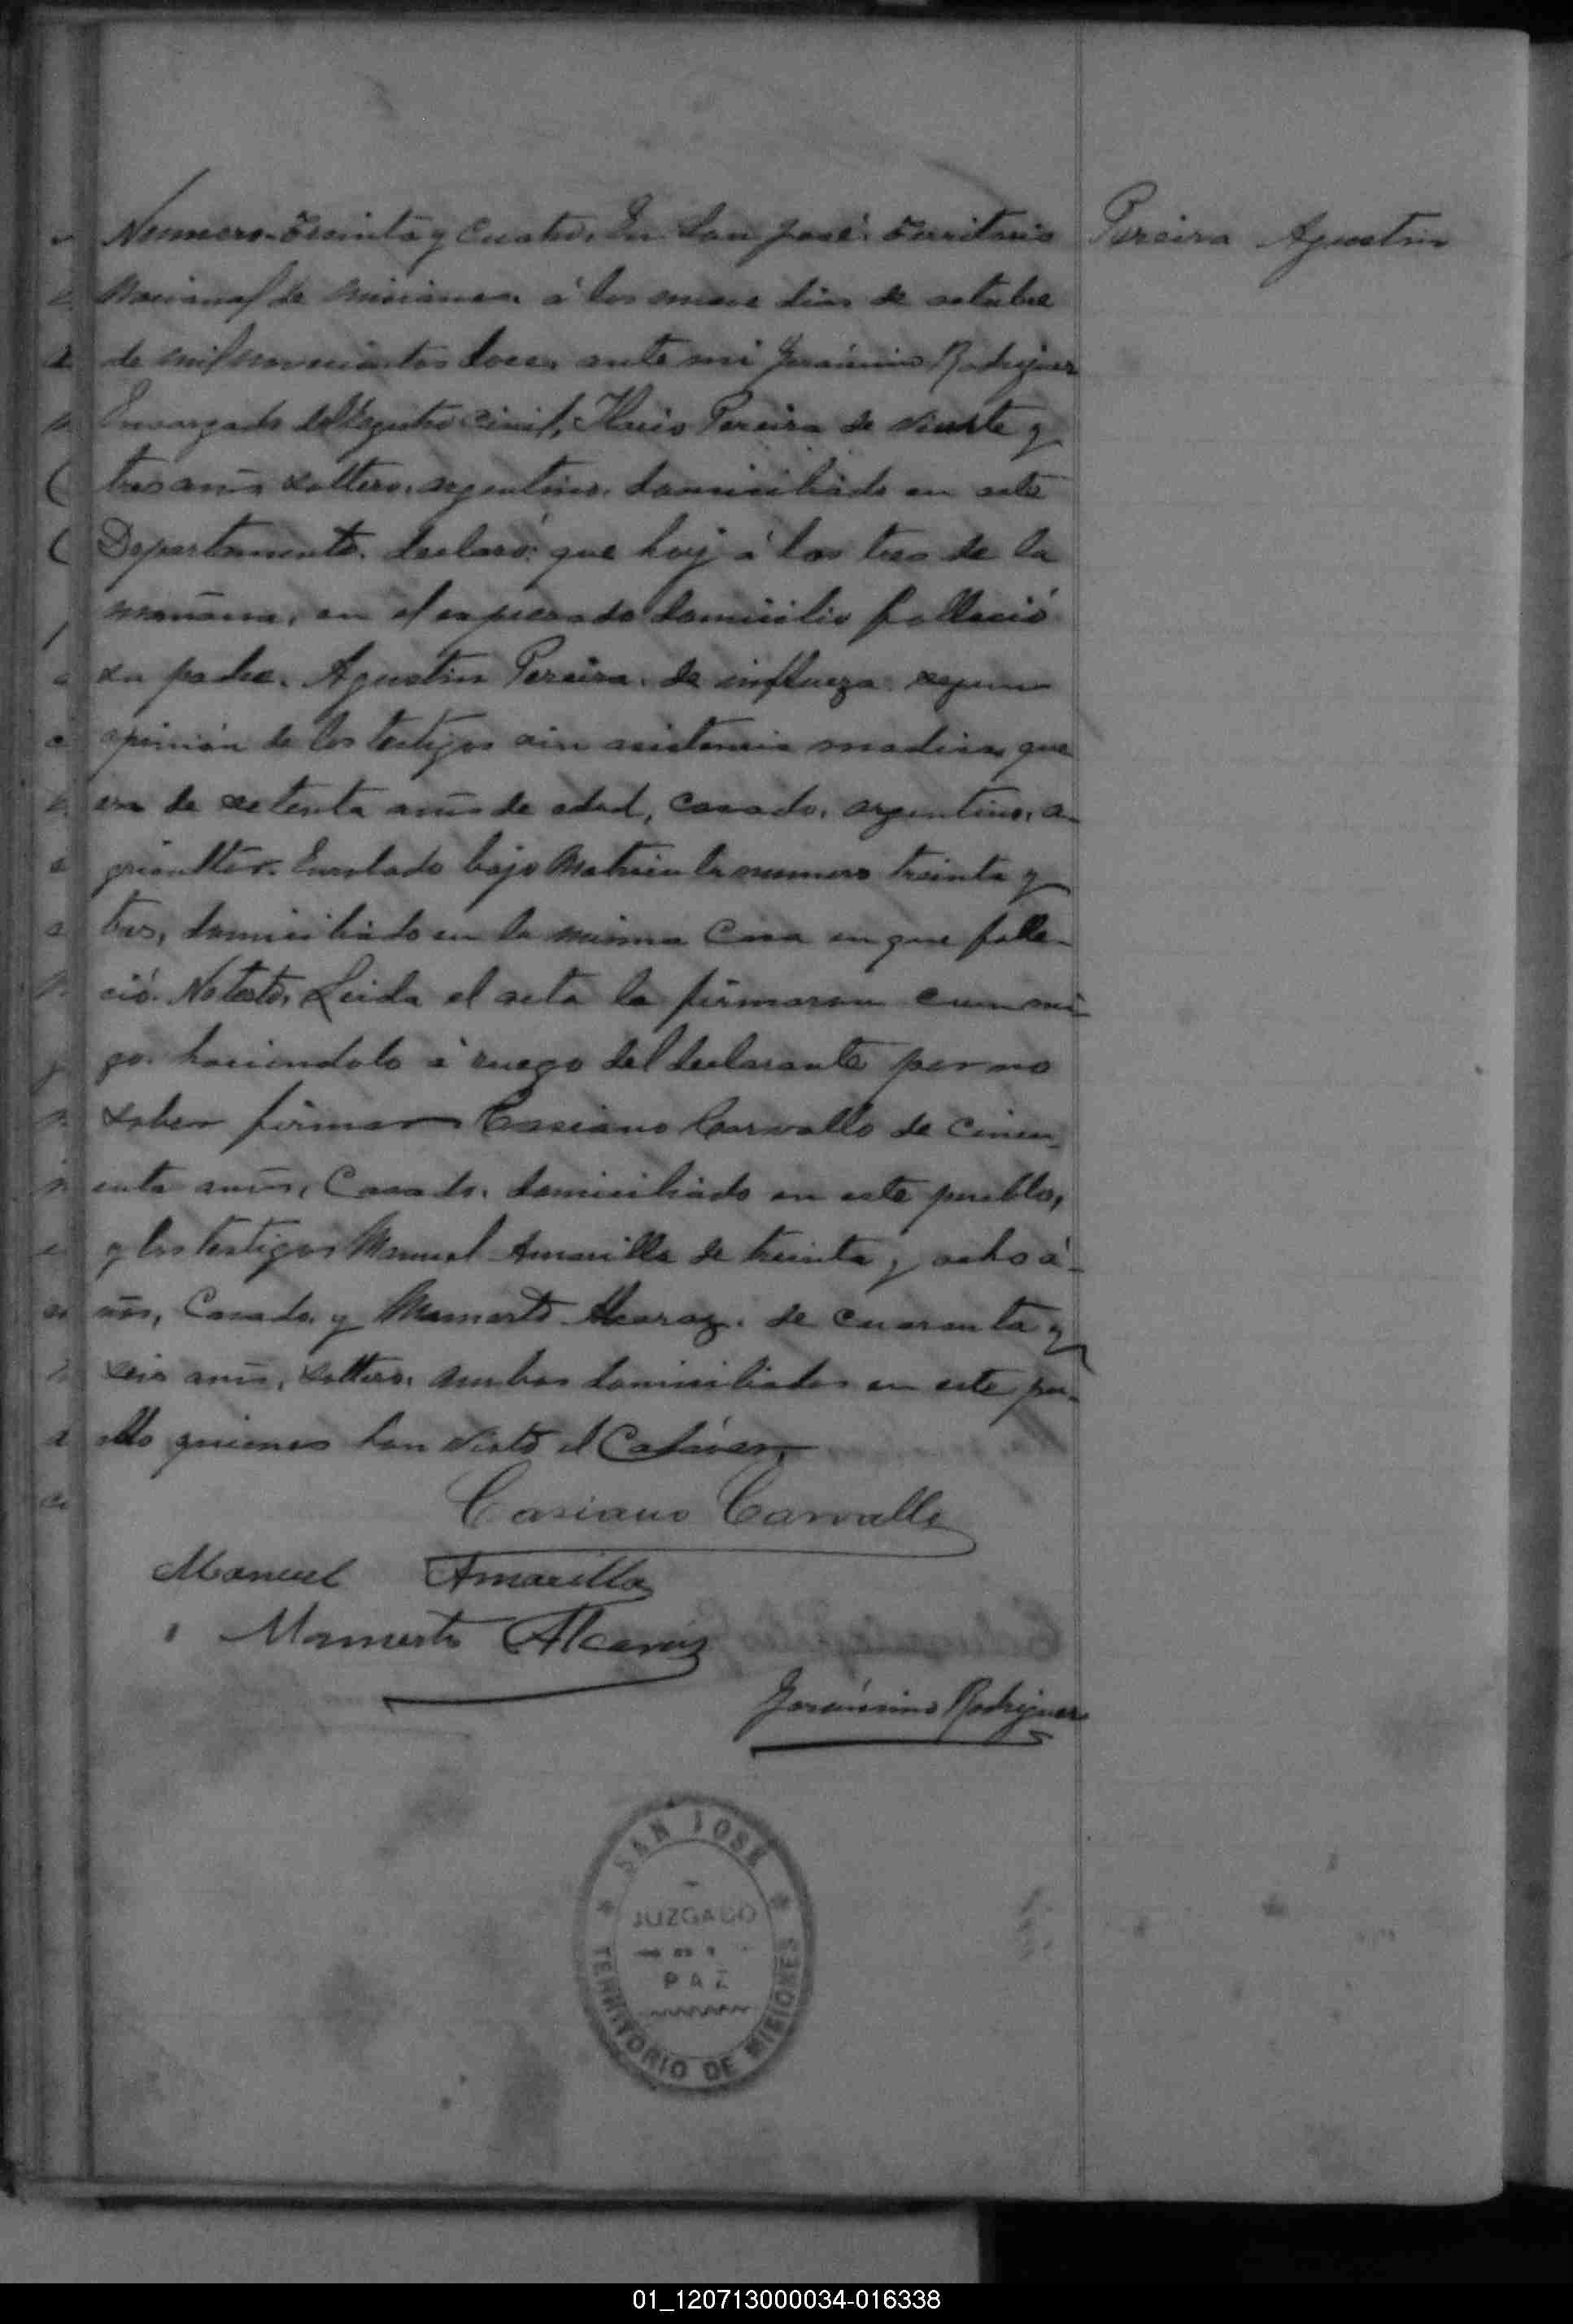 Numero Treinta y Cuatro. En San José. Territorio
Nacional de Misiones. á los nueve dias de octubre
de mil novecientos doce. ante mi Jerónimo Rodriguez
Encargado del Registro Civil, Pereira de Veinte y
tres años soltero. argentino. domiciliado en este
Departamento. declaró: que hoy á las tres de la
mañana, en el expresado domicilio falleció
su padre. Agustin Pereira. de influeza segun
opinión de los testigos sin asistencia medica que
era de setenta años de edad, casado, argentino, a-
gricultor. Enrolado bajo Matricula numero treinta y
tres, domiciliado en la misma Casa en que falle-
ció. No testó. Leida el acta la firmaron cunmi-
go. haciendolo á ruego del declarante por no
saber firmar Casiano Carvallo de Cincu-
enta años, Casado. domiciliado en este pueblo,
y los testigos Manuel Amarilla de treinta y ocho á-
ños, Casado, y Mamerto Alcaraz. de cuarenta y
seis años, soltero. ambos domiciliados en este pu-
eblo quienes han visto el Cadáver.
Casiano Carvallo
Manuel Amarilla
Mamerto Alcaráz
Jerónimo Rodriguez
Pereira Agustin
SAN JOSÉ
JUZGADO
DE
PAZ
TERRITORIO DE MISIONES
01_120713000034-016338